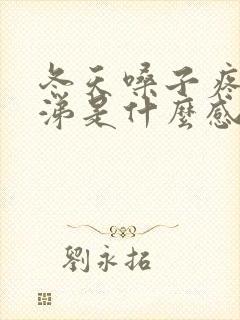 冬天嗓子疼
涕是什麼感
劉永拓